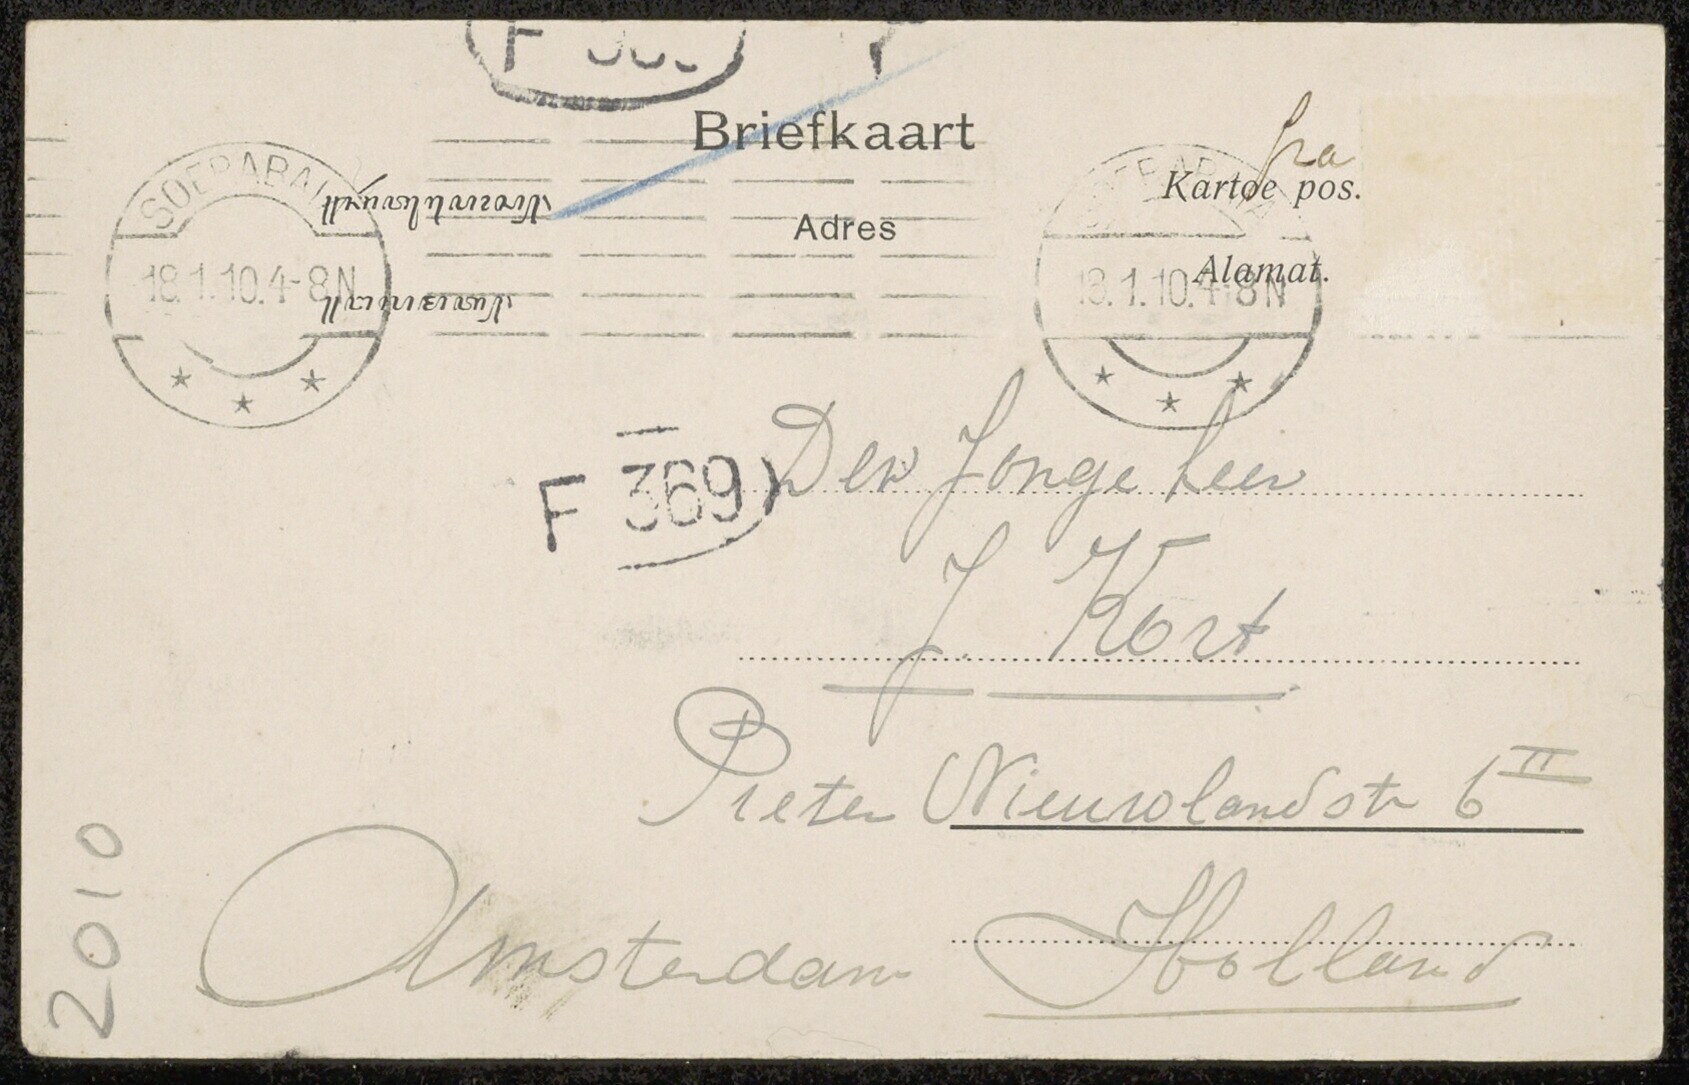 F
Briefkaart
fra
Kartoe pos.
SOERABAIA
18.1.10.4-8N
Adres
Alamat.
SOERABAIA
18.1.10.4-8N
F 369
Den Jonge heer
J. Kort
Pieter Nieuwlandstr 6 II
Amsterdam Holland
2010